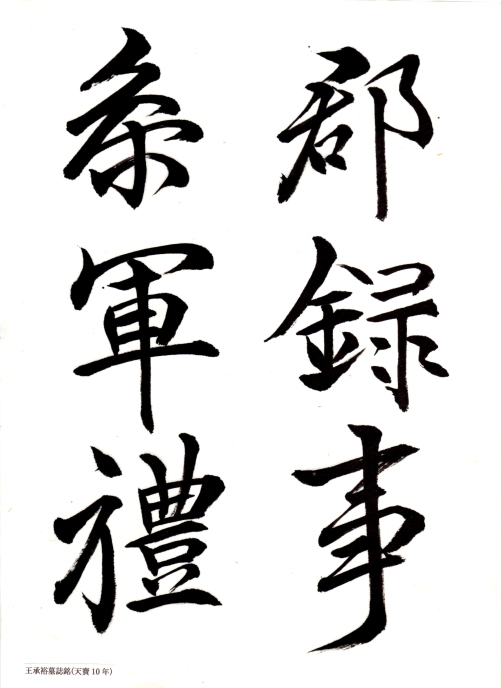 郡録事
叅軍禮
王承裕墓誌銘(天寶10年)